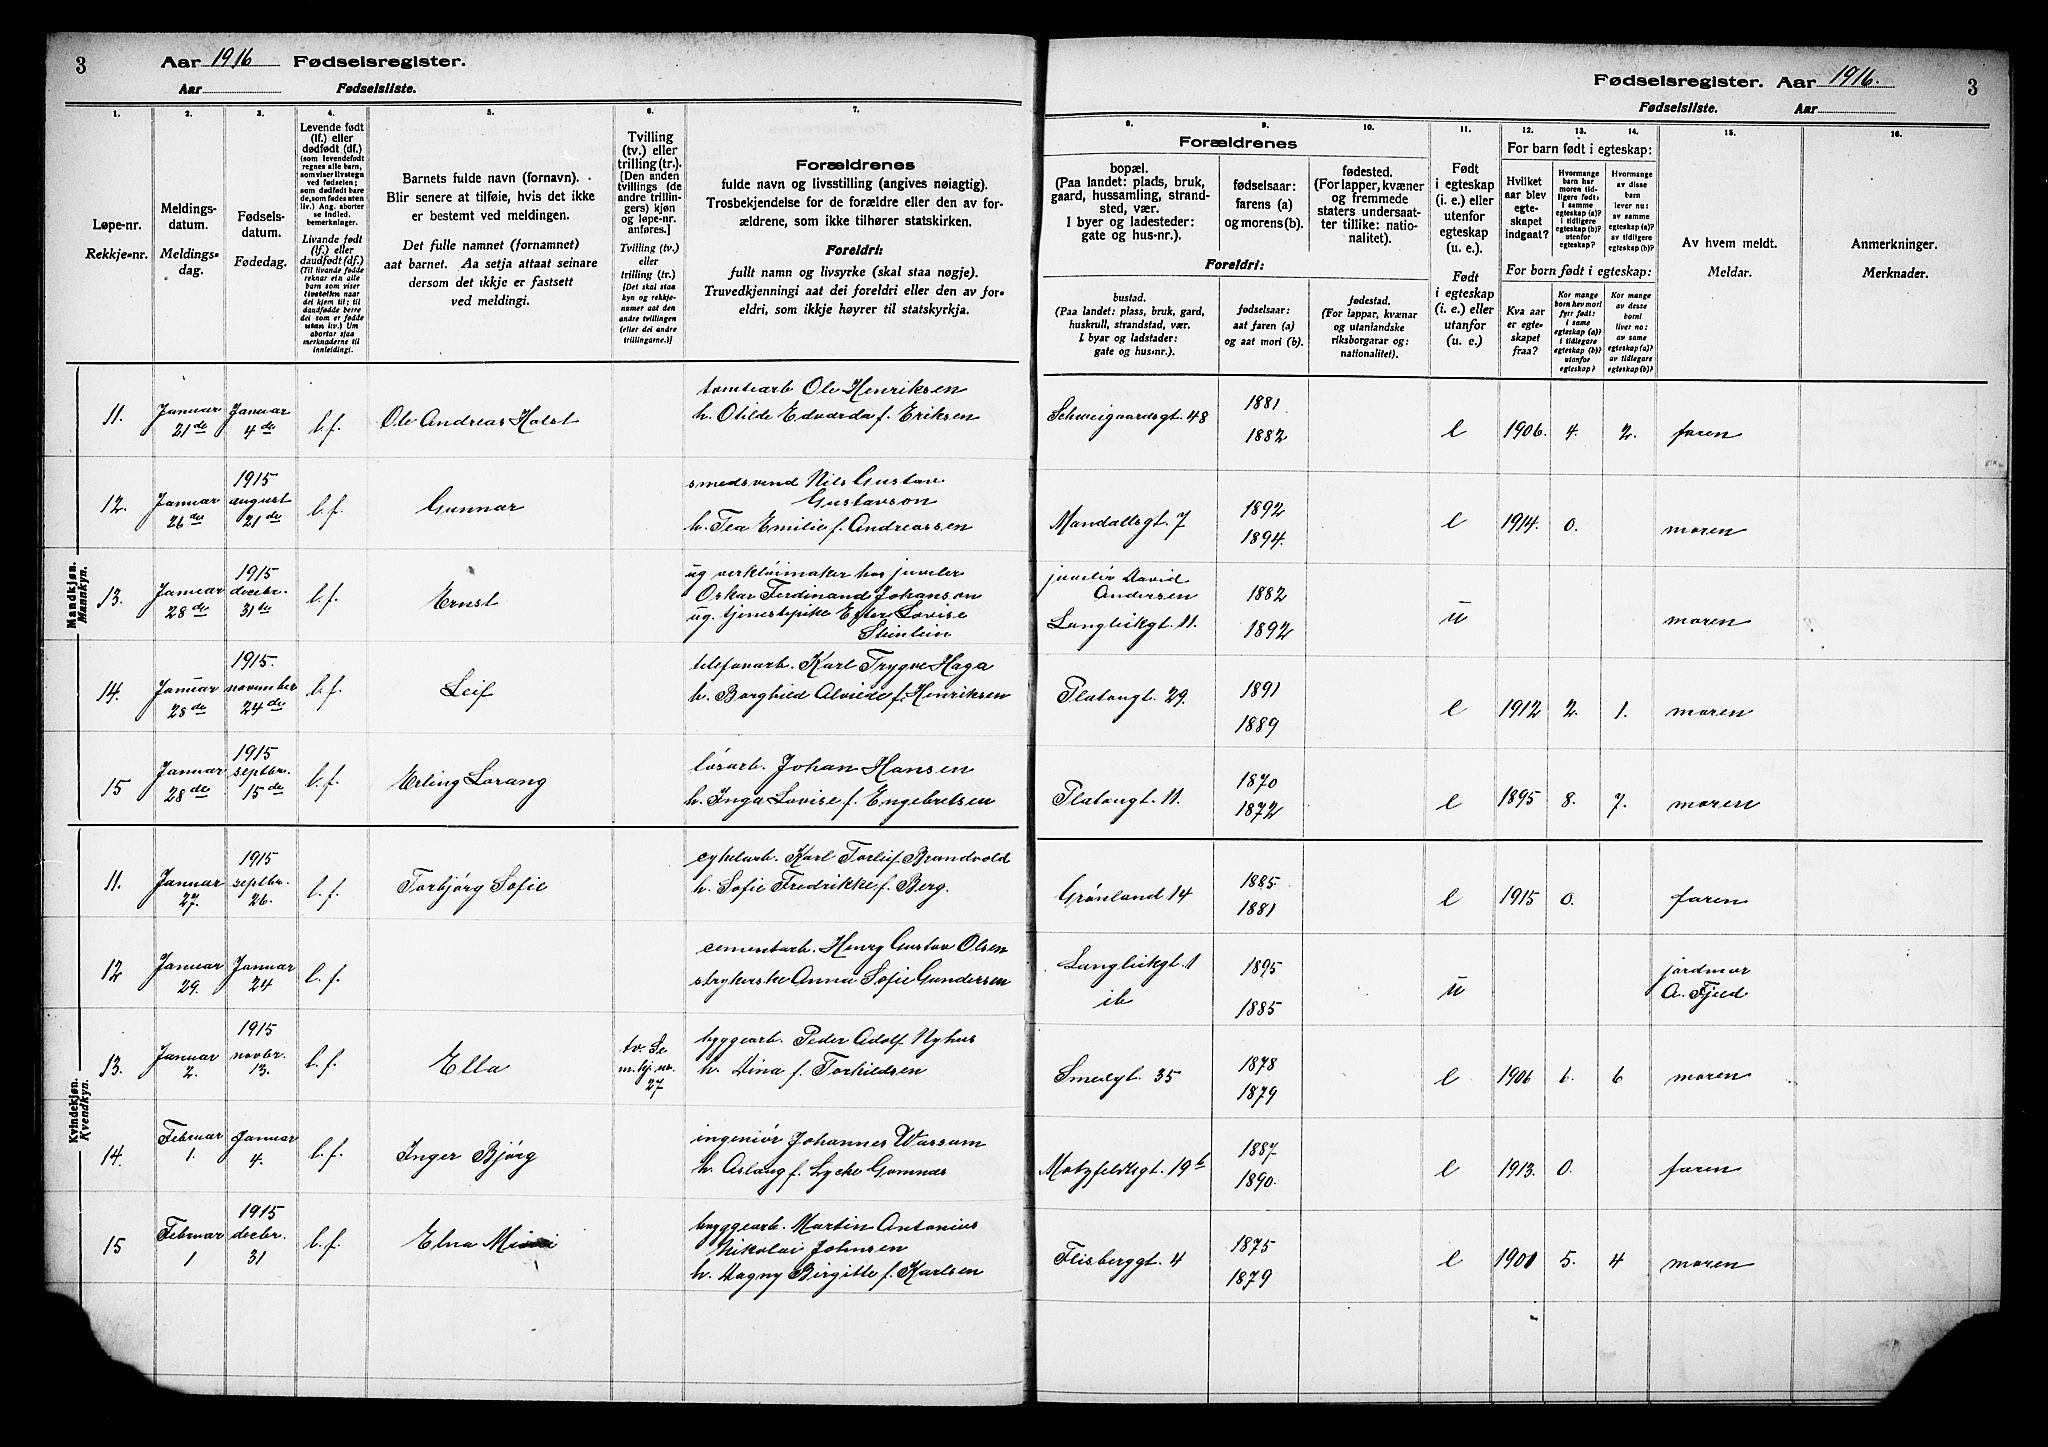 3
Aar 1916 Fødselsregister.
Aar Fødselsliste.
1. 2. 3. 4. 5. 6. 7.
Løpe-nr.
Rekkje-nr.
Meldings-
datum.
Meldings-
dag.
Fødsels-
datum.
Fødedag.
Levende født
(lf.) eller
dødfødt (df.)
(som levendefødt
regnes alle barn,
som viser livstegn
ved fødselen;
som dødfødt bare
de, som fødes uten
liv.) Ang. aborter
se indled.
bemerkninger.
Livande født
(lf.) eller
daudfødt (df.)
(Til livande fødde
reknar ein alle
barn som viser
livsteikn naar
dei kjem til; til
daudfødde berre
dei som er fødde
utan liv.) Um
abortar sjaa
merknaderne til
innleidingi.
Barnets fulde navn (fornavn).
Blir senere at tilføie, hvis det ikke
er bestemt ved meldingen.
Det fulle namnet (fornamnet)
aat barnet. Aa setja attaat seinare
dersom det ikkje er fastsett
ved meldingi.
Tvilling
(tv.) eller
trilling (tr.).
[Den anden
tvillings (de
andre trillin-
gers) kjøn
og løpe-nr.
anføres.]
Tvilling (tv.)
eller
trilling (tr.)
[Det skal staa
kyn og rekkje-
numer aat den
andre tvillingen
(eller dei andre
trillingarne.)]
Forældrenes
fulde navn og livsstilling (angives nøiagtig).
Trosbekjendelse for de forældre eller den av for-
ældrene, som ikke tilhører statskirken.
Foreldri:
fullt namn og livsyrke (skal staa nøgje).
Truvedkjenningi aat dei foreldri eller den av for-
eldri, som ikkje høyrer til statskyrkja.
Mandkjøn.
Mannkyn.
11. Januar 21de Januar 4de l.f. Ole Andreas Holst
tomtearb Ole Henriksen
h. Otilde Edvarda f. Eriksen
12. Januar 26de 1915 august 21de l.f. Gunnar
smedsvend Nils Gustav
Gustavson
h. Tea Emilie f. Andreassen
13. Januar 28de 1915 decbr. 31te l.f. Ernst
ug verktøimaker hos juveler
Oskar Ferdinand Johanson
ug. tjenestepike Ester Lovise
Steinlein
14. Januar 28de 1915. november 24de l.f. Leif
telefonarb. Karl Trygve Haga
h. Borghild Alvide f. Henriksen
15 Januar 28de 1915 septbr. 15de l.f. Erling Lorang
løsarb. Johan Hansen
h. Inga Lovise f. Engebretsen
Kvindekjøn.
Kvendkyn.
11. Januar 27. 1915 septbr. 26. l.f. Torbjørg Sofie
cykelarb. Karl Torleif Brandvold
h. Sofie Fredrikke f. Berg.
12 Januar 29. Januar 24 l.f.
cementarb. Henry Gustav Olsen
strykerske Anna Sofie Gundersen
13. Januar 2. 1915 novbr. 13. l.f. Ella tv. Se m.kj. nr. 27
byggearb. Peder Adolf Nyhus
h. Dina f. Torkildsen
14. Februar 1. Januar 4. l.f. Inger Bjørg
ingeniør Johannes Warsum
h. Aslaug f. Lycke Gomnæs
15 Februar 1 1915 decbr. 31 l.f. Elna
byggearb. Martin Antonius
Nikolai Johnsen
h. Dagny Birgitte f. Karlsen
Fødselsregister. Aar 1916. 3
Fødselsliste. Aar
8. 9. 10. 11. 12. 13. 14. 15. 16.
Forældrenes
bopæl.
(Paa landet: plads, bruk,
gaard, hussamling, strand-
sted, vær.
I byer og ladesteder:
gate og hus-nr.).
fødselsaar:
farens (a)
og morens (b).
fødested.
(For lapper, kvæner
og fremmede
staters undersaat-
ter tillike: natio-
nalitet).
Foreldri:
bustad.
(Paa landet: plass, bruk, gard,
huskrull, strandstad, vær.
I byar og ladstader:
gate og hus-nr.).
fødselsaar:
aat faren (a)
og aat mori (b).
fødestad.
(For lappar, kvænar
og utanlandske
riksborgarar og:
nationalitet).
Født
i egteskap
(i. e.) eller
utenfor
egteskap
(u. e.).
Født
i egteskap
(i. e.) eller
utanfor
(u. e.).
For barn født i egteskap:
Hvilket
aar blev
egte-
skapet
indgaat?
Hvormange
barn har
moren tid-
ligere født:
i samme
egteskap (a)?
i tidligere
egteskap (b)?
utenfor
egteskap?
Hvormange
av disse
barn
lever nu:
av samme
egteskap (a)?
av tidligere
egteskap (b)?
For born født i egteskap:
Kva aar
er egte-
skapet
fraa?
Kor mange
born hev mori
fyrr født:
i same
egteskap (a)?
i tidlegare
egteskap (b)?
utanfor
egteskap?
Kor mange
av desse
borni
liver no:
av same
egteskap (a)?
av tidlegare
egteskap (b)?
Av hvem meldt.
Meldar.
Anmerkninger.
Merknader.
Schweigaardsgt. 48 1881 1882 e 1906. 4. 2. faren
Mandallsgt. 7 1892 1894. e 1914. 0. moren
juvelér David
Andersen
Langleikgt. 11. 1882 1892 u moren
Platougt. 29. 1891 1889 e 1912 2. 1. moren
Platougt. 11. 1870 1872 e 1895 8. 7. moren
Grønland 14 1885. 1881 e 1915 0. faren
Langleikgt. 1
ib 1895 1885 u jordmor
A. Fjeld
Smedgt. 35 1878 1879 e 1906 6. 6 moren
Motzfeldtsgt. 19b 1887 1890. e 1913. 0. faren
Flisberggt. 4 1875 1879 e 1901 5. 4 moren